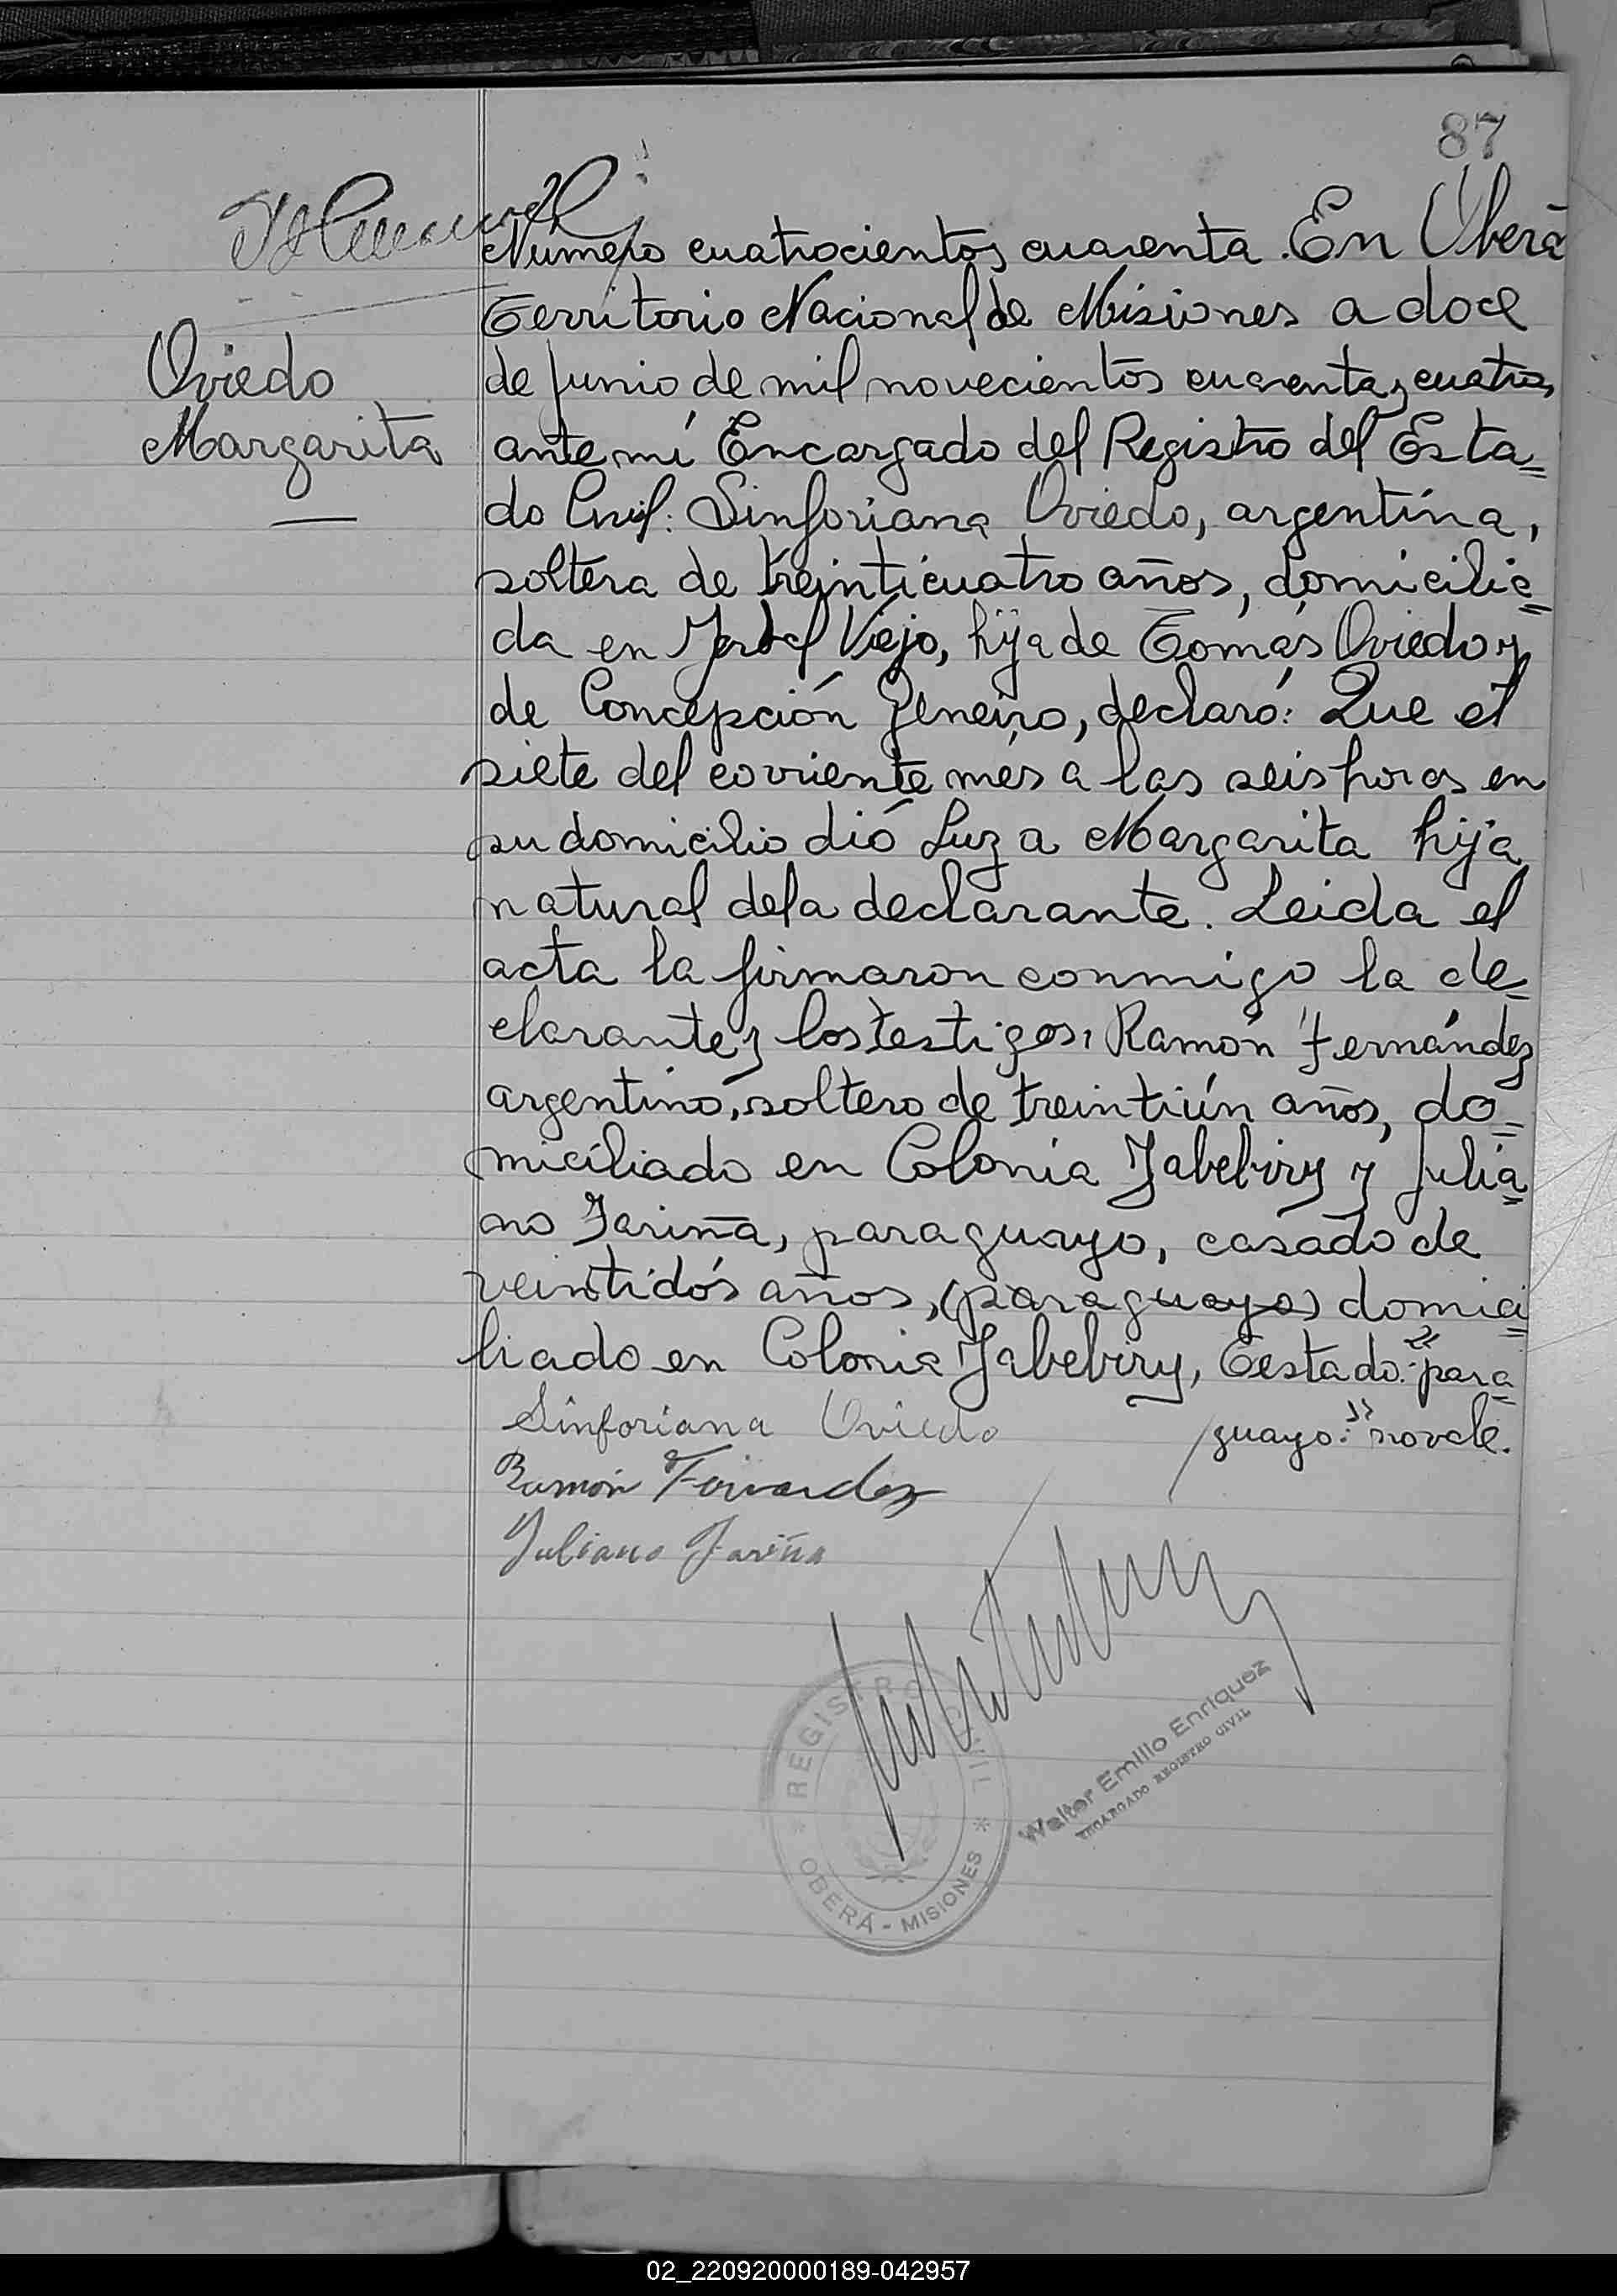 87
Número cuatrocientos cuarenta. En Oberá
Territorio Nacional de Misiones a doce
Oviedo
de Junio de mil novecientos cuarenta y cuatro,
Margarita
ante mí Encargado del Registro del Esta=
do Civil: Sinforiana Oviedo, argentina,
soltera de treinticuatro años, domicilia=
da en Yerbal Viejo, hija de Tomás Oviedo y
de Concepción Zeneiro, declaró: Que el
siete del corriente mes a las seis horas en
su domicilio dió Luz a Margarita hija
natural de la declarante. Leida el
acta la firmaron conmigo la de=
clarante y los testigos, Ramón Fernández
argentino, soltero de treintiún años, do=
miciliado en Colonia Yabebiry y Julia=
no Fariña, paraguayo, casado de
veintidós años, (paraguayo) domici=
liado en Colonia Yabebiry, Testado: "para=
guayo:" no vale.
Sinforiana Oviedo
Ramón Fernandez
Juliano Fariña
REGISTRO CIVIL
* OBERÁ - MISIONES *
Walter Emilio Enriquez
ENCARGADO REGISTRO CIVIL
02_220920000189-042957